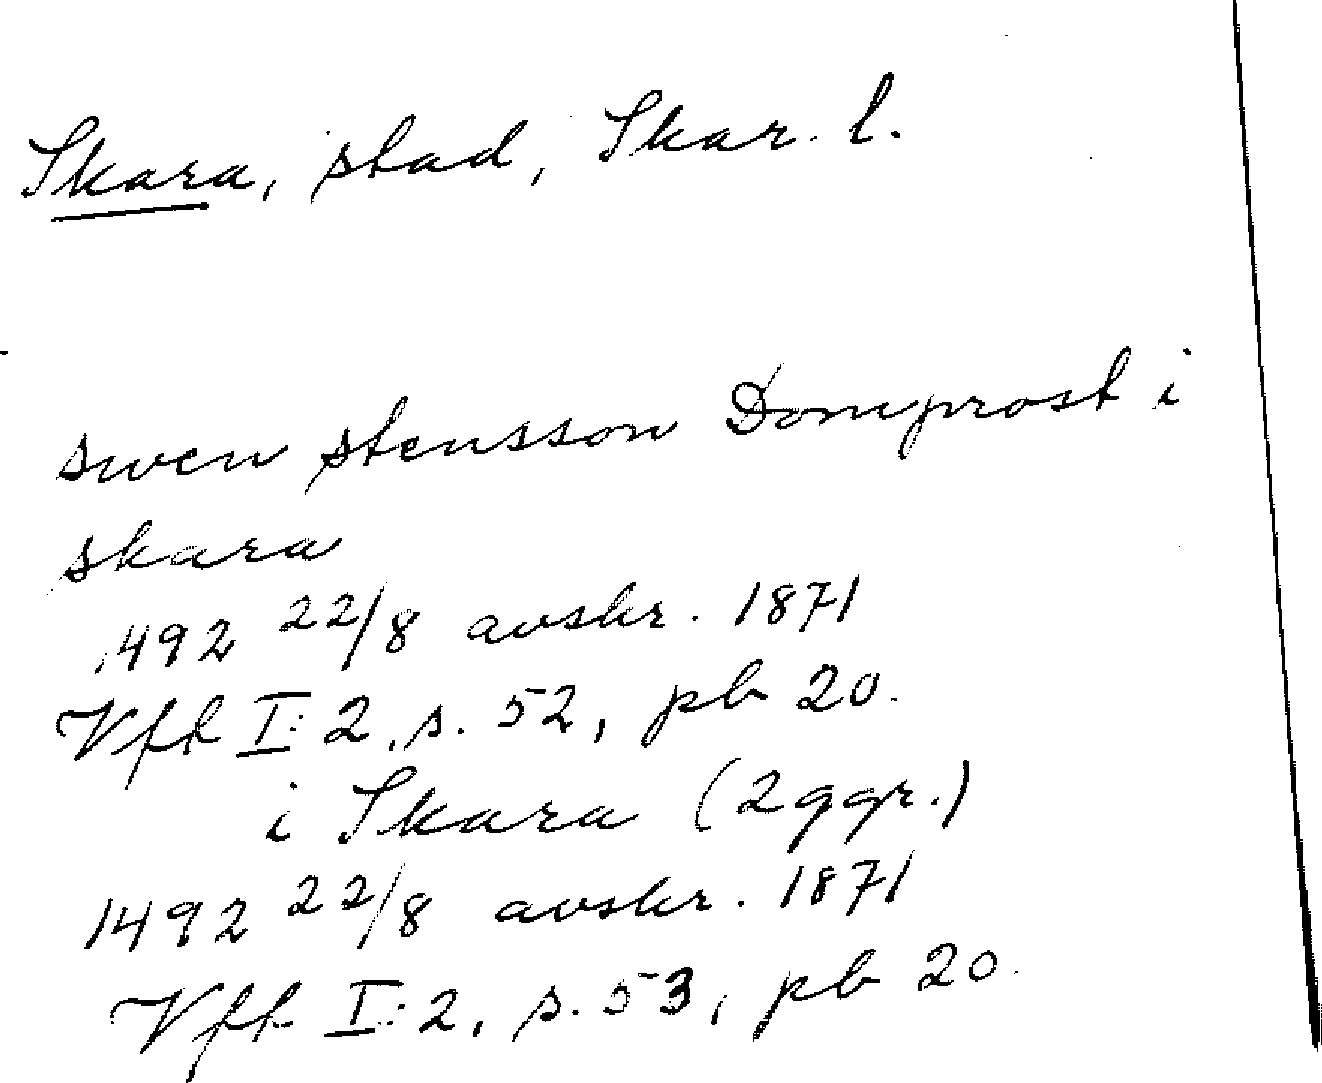 Skara, stad, Skar. l.
swen stensson Domprost i
skara
1492 22/8 avskr. 1871
Vfft I:2, s. 52, pb 20.
i Skara (2 ggr.)
1492 22/8 avskr. 1871
Vfft I:2, s. 53, pb 20.